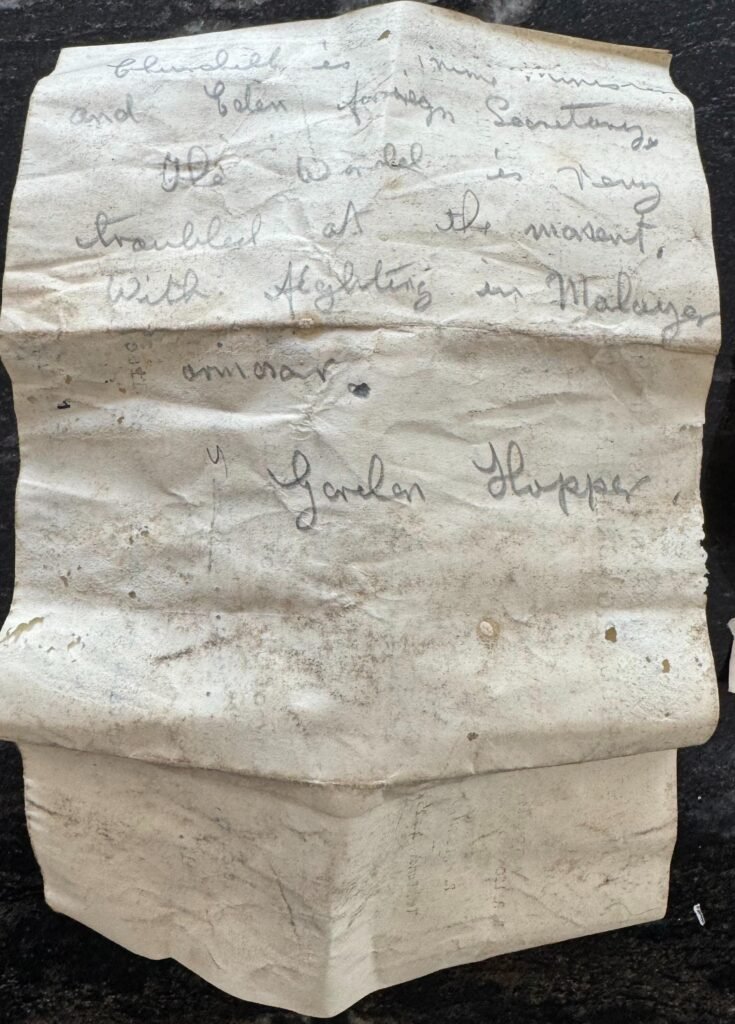 Churchill is Prime Minister
and Eden foreign Secretary.
The World is very
troubled at the moment,
With fighting in Malaya
Gordon Hopper